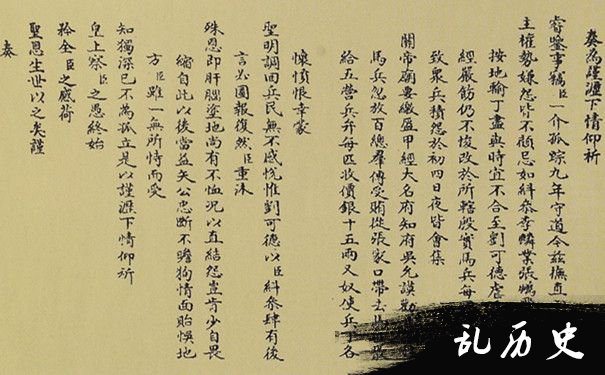 奏為謹瀝下情仰祈
睿鑒事竊臣一介孤踪九年守道今茲撫直
主權勢嫌怨皆不顧忌如糾叅李麟業張鵬
按地輸丁盡與時宜不合至劉可德虐
經嚴飭仍不悛改於所轄殷實馬兵每
致衆兵積怨於初四日夜皆會集
關帝廟要繳盔甲經大名府知府吳允謨勸
馬兵忽放百總羣傳受賄從張家口帶去馬
給五營兵弁每匹收價銀十五兩又奴使兵丁各
懷憤恨幸蒙
聖明調回兵民無不感悅惟劉可德以臣糾叅肆有後
言必圖報復然臣重沐
殊恩即肝腦塗地尚有不恤況以直結怨豈肯少自畏
縮自此以後當益矢公忠斷不瞻狥情面貽悞地
方臣雖一無所恃而受
知獨深已不為孤立是以謹瀝下情仰祈
皇上察臣之愚終始
矜全臣之感荷
聖恩生世以之矣謹
奏
乱历史